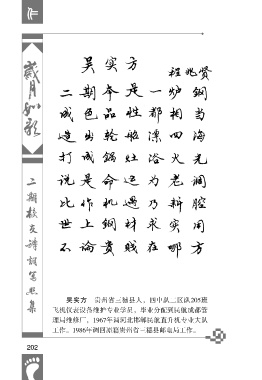 岁月如歌
二期校友诗词写照集
吴实方
程兆贤
二期本是一炉钢
成色品性都相当
造出轮船漂四海
打成锅灶浴火光
说是命运为老调
比作机遇乃新腔
世上钢材求实用
不论贵贱在哪方
吴实方 贵州省三穗县人，四中队二区队205班
飞机仪表设备维护专业学员。毕业分配到民航成都管
理局维修厂，1967年调河北邯郸民航直升机专业大队
工作。1986年调回原籍贵州省三穗县邮电局工作。
202